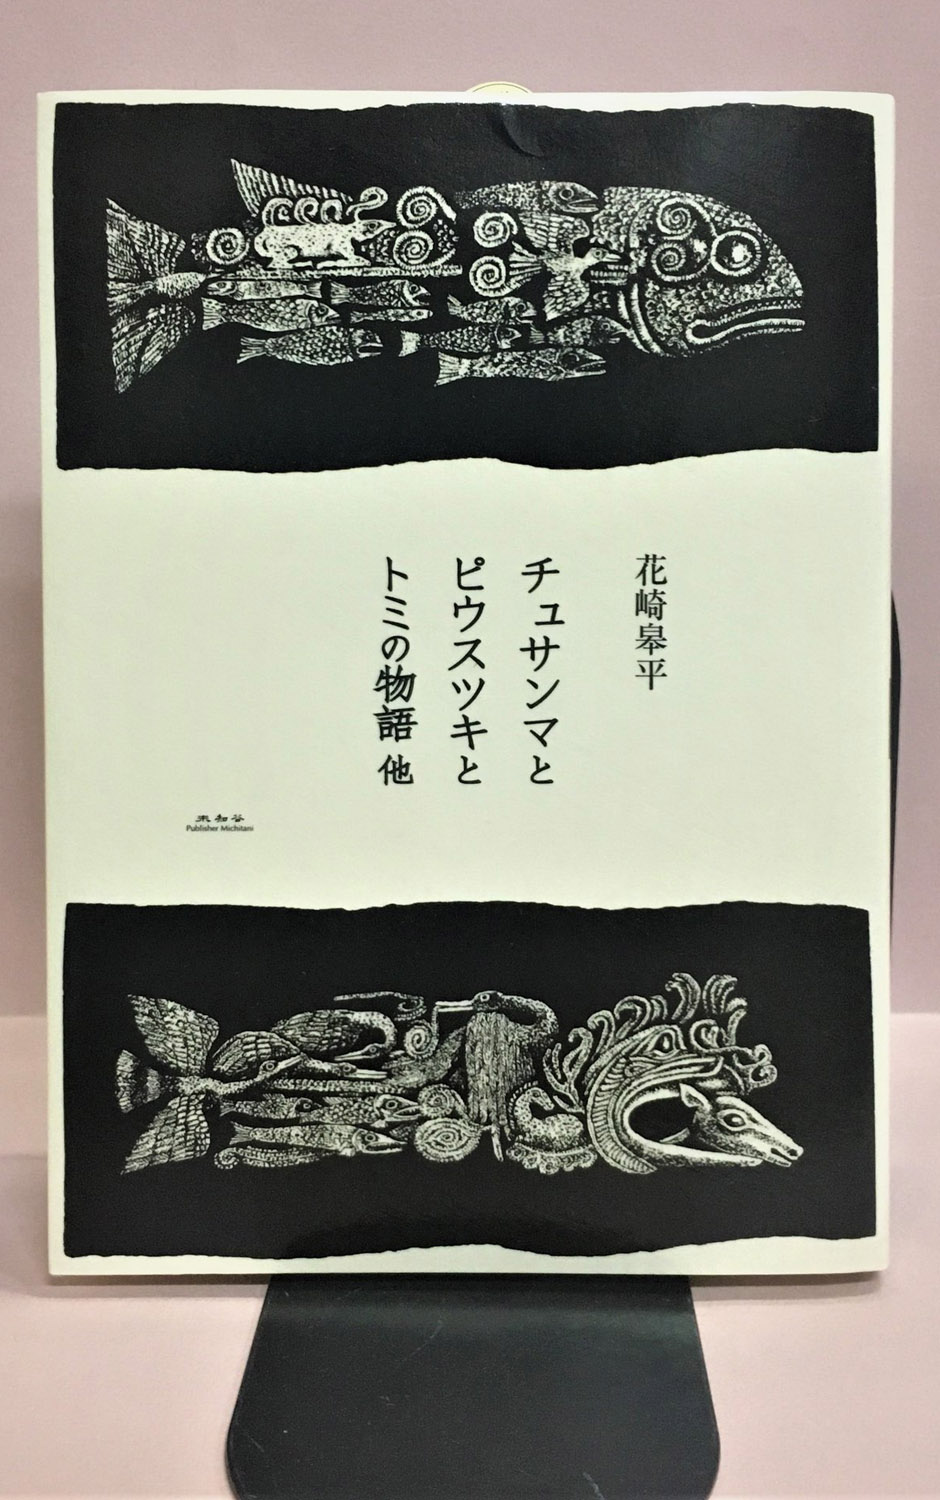 花崎皋平
チュサンマと
ピウスツキと
トミの物語 他
未知谷
Publisher Michitani